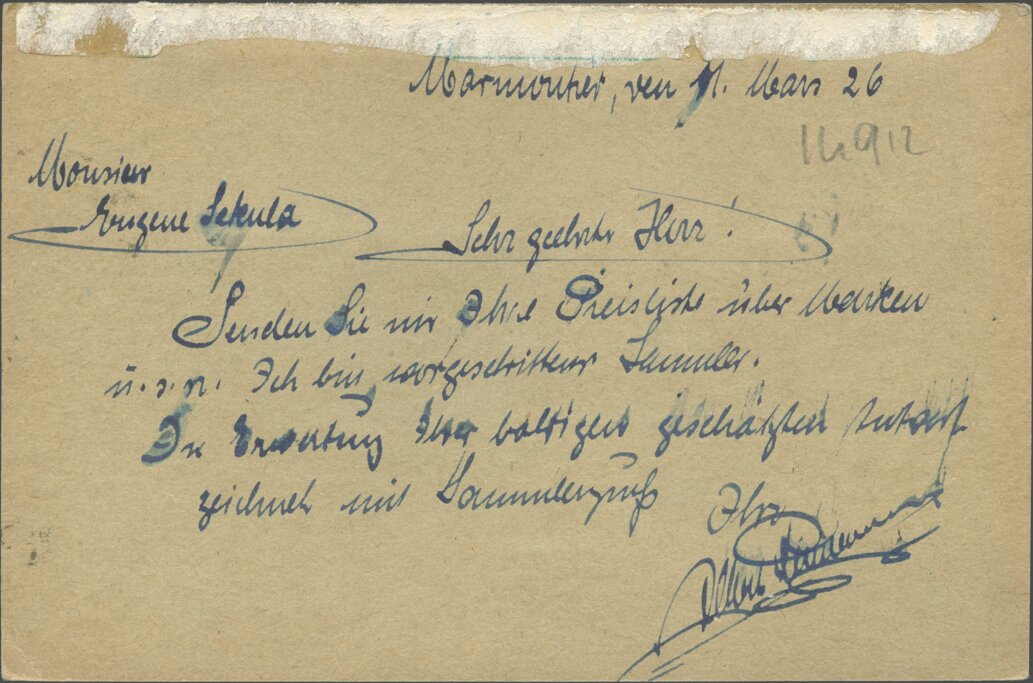 Marmoutier, den 11. Mars 26
14912
Monsieur
Eugene Sekula
Sehr geehrter Herr!
Senden Sie mir Ihre Preisliste über Marken
u.s.w. Ich bin vorgeschrittener Sammler.
In Erwartung Ihrer baldigen geschätzten Antwort
zeichnet mit Sammlergruß Ihr
Albert